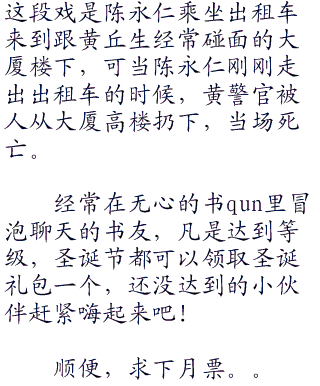 这段戏是陈永仁乘坐出租车
来到跟黄丘生经常碰面的大
厦楼下，可当陈永仁刚刚走
出出租车的时候，黄警官被
人从大厦高楼扔下，当场死
亡。
经常在无心的书qun里冒
泡聊天的书友，凡是达到等
级，圣诞节都可以领取圣诞
礼包一个，还没达到的小伙
伴赶紧嗨起来吧！
顺便，求下月票。。